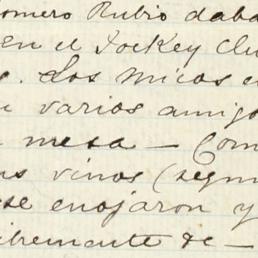 omero Rubio daba
en el Jockey Clu
. Los micos e
varios amigo
mesa — Com
vinos (segun
se enojaron y
ibremente de —